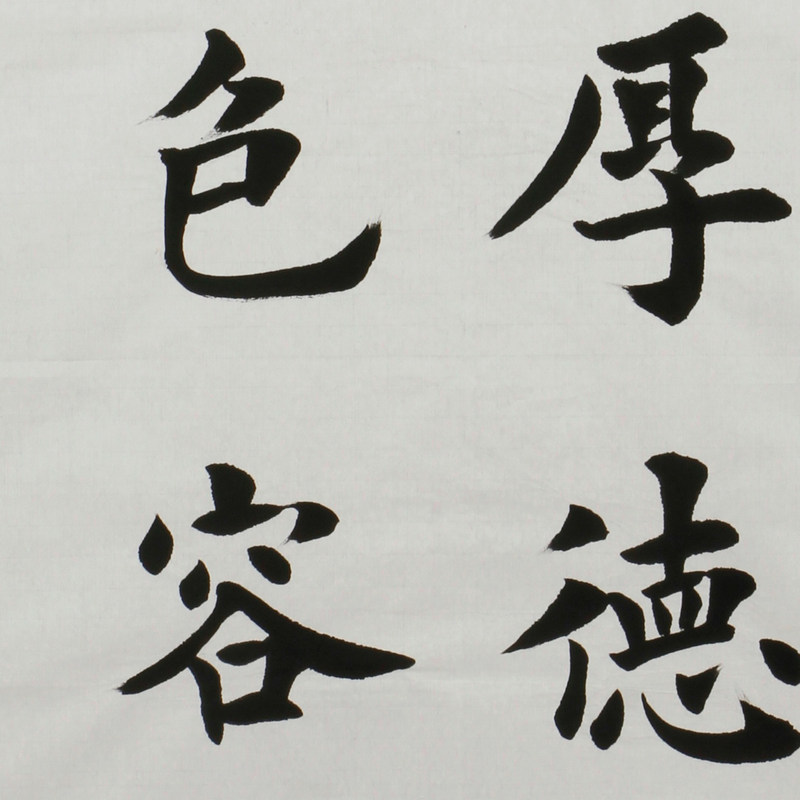 厚德
色容